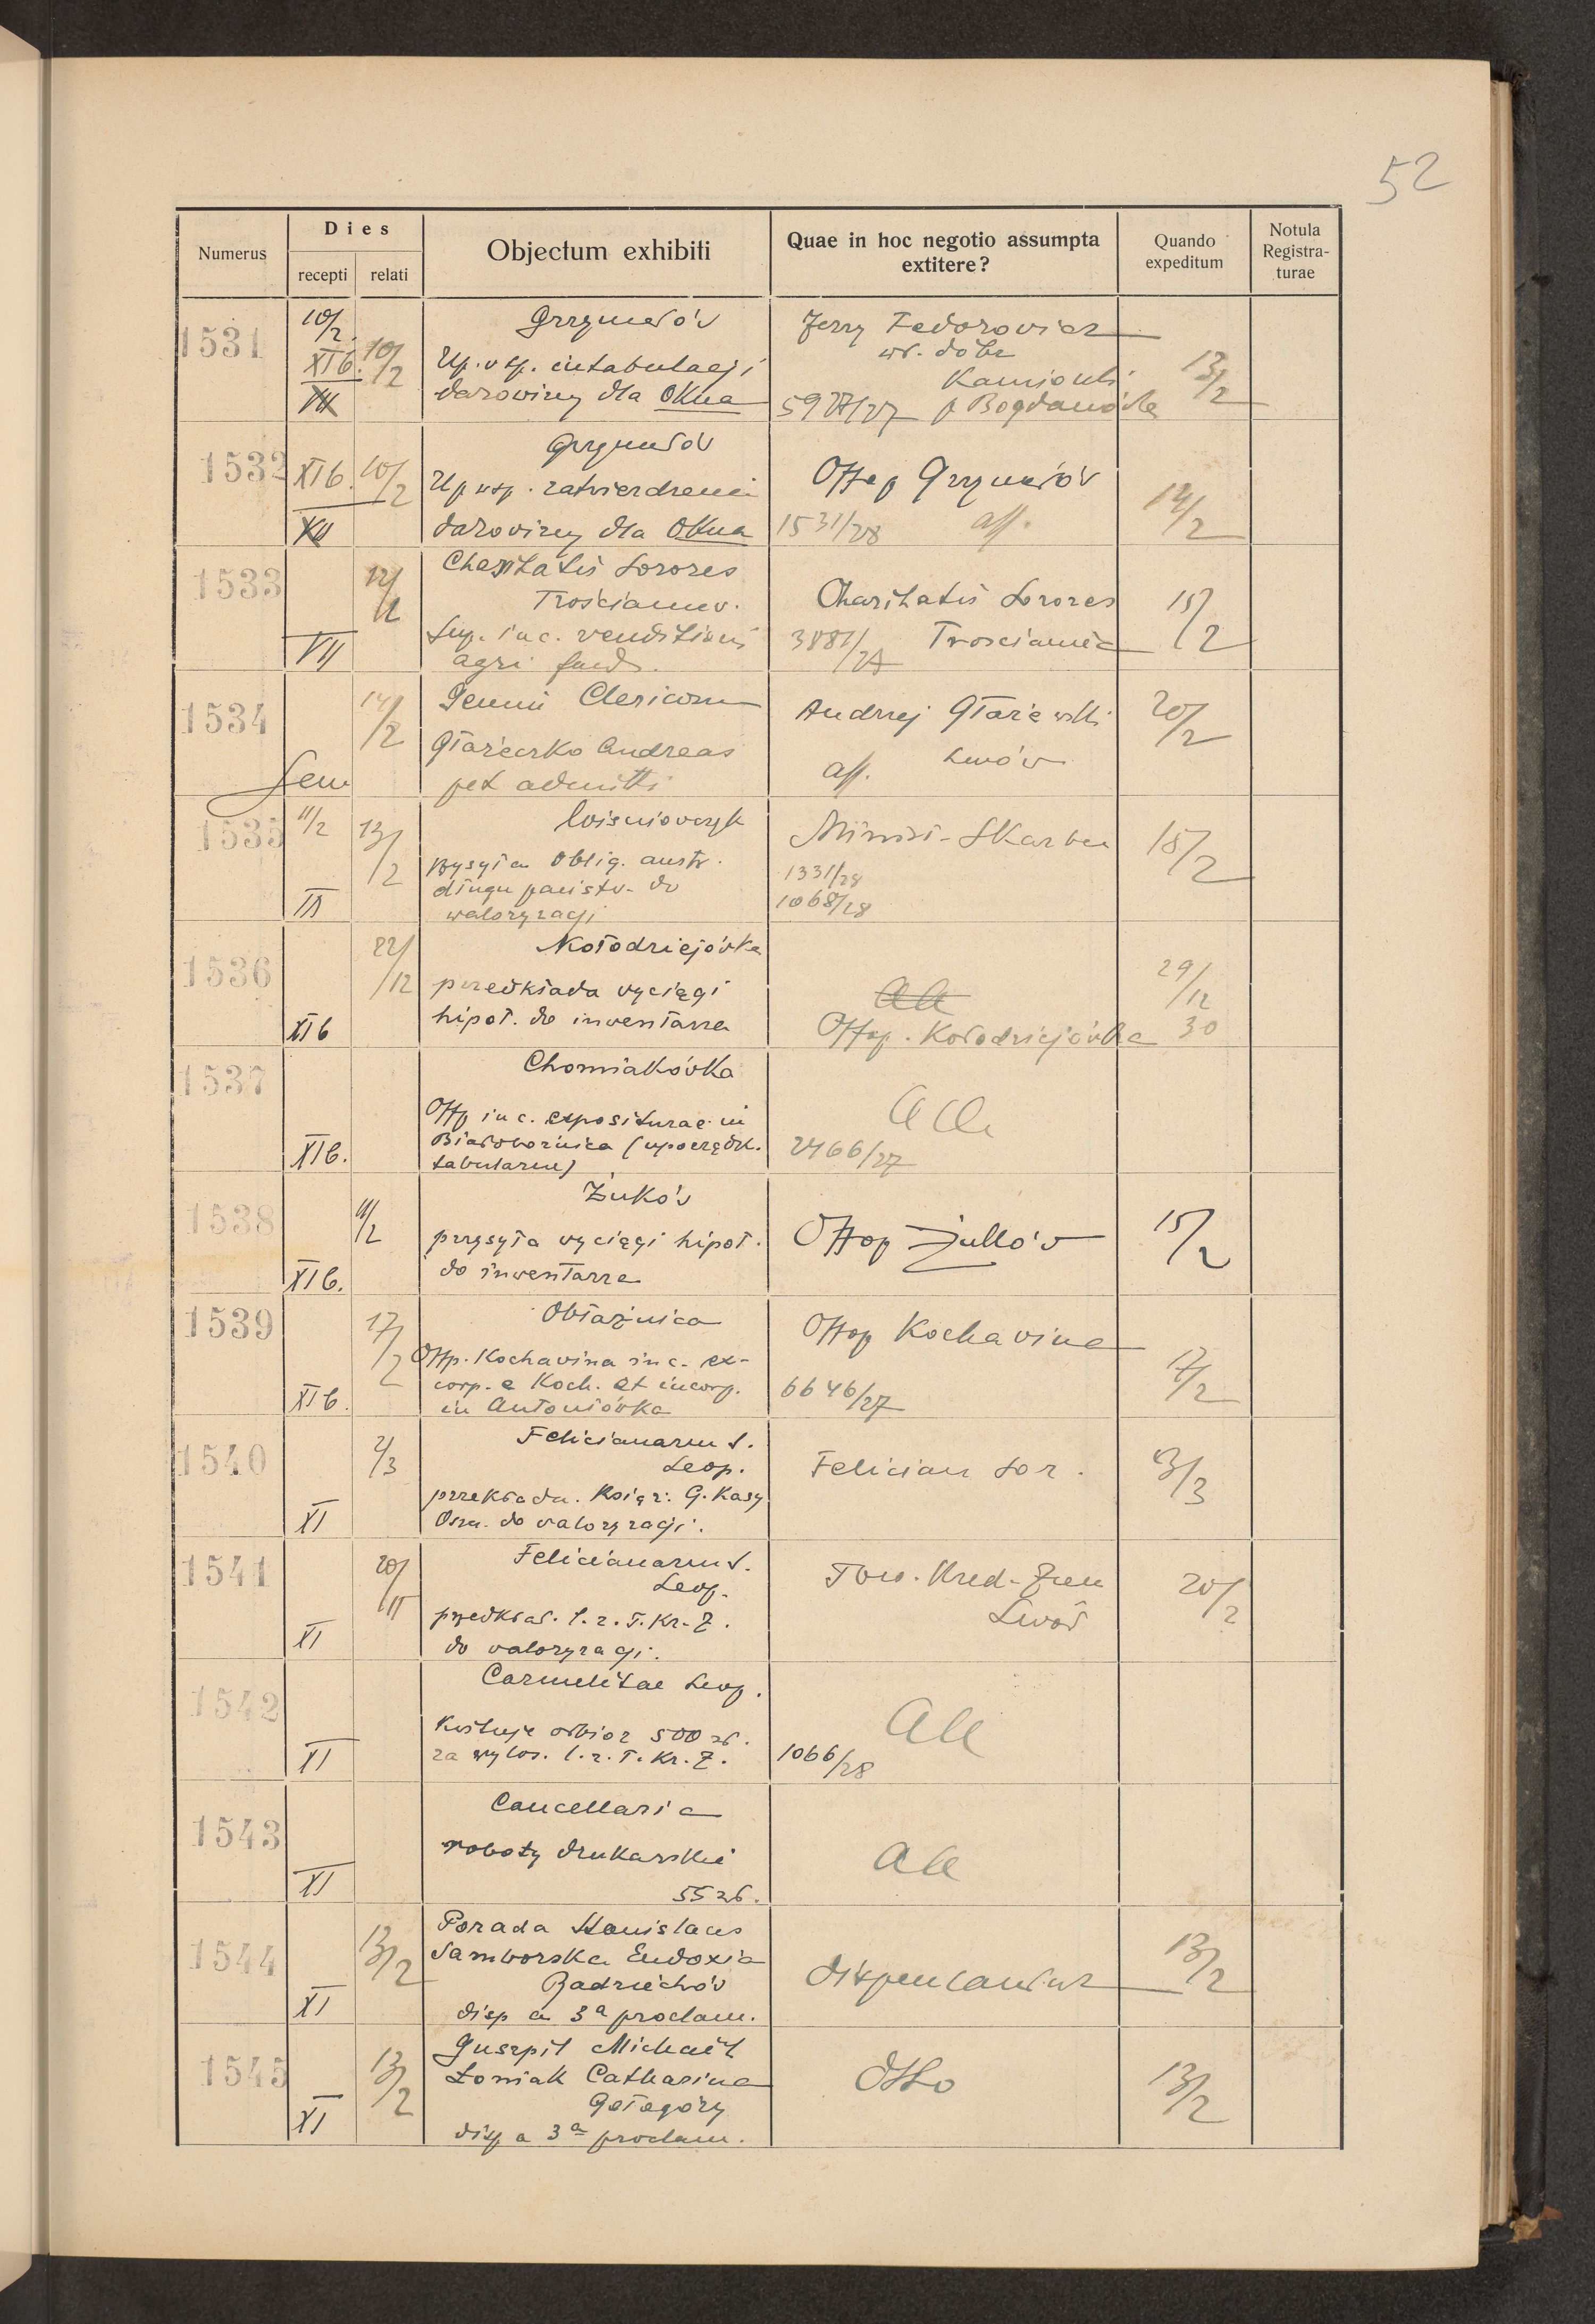 52
Numerus
Dies
recepti
relati
Objectum exhibiti
Quae in hoc negotio assumpta
extitere?
Quando
expeditum
Notula
Registra-
turae
1531
10/2
XIb.
VII
10/2
Grzymałów
Up. o sp. intabulacji
darowizny dla Okna
Jerzy Fedorowicz
wł. dóbr
Kamionki
5977/27 p Bogdanówka
13/2
1532
XIb.
XII
10/2
Grzymałów
Up. wsp. zatwierdzenia
darowizny dla Okna
Offop Grzymałów
1531/28 all.
14/2
1533
VII
Charitatis Sorores
Trościaniec.
Sup. in c. venditionis
agri fund.
Charitatis Sorores
3881/27 Trościaniec
15/2
1534
Sem
14/2
Semin Clericorum
Głażewsko Andreas
pet admitti
Andrzej Głażewski
all. Lwów
20/2
1535
11/2
IX
13/2
Wiśniowczyk
wysyła Oblig. austr.
długu państw. do
waloryzacji
Minist. Skarbu
1331/28
1068/28
15/2
1536
XIb
22/12
Kołodziejówka
przedkłada wyciągi
hipot. do inwentarza
aa
Offop. Kołodziejówka
29/12
30
1537
XIb.
Chomiakówka
Off in c. expositurae in
Białobożnica (uporządk.
tabularne)
aa
2466/27
1538
XIb.
11/2
Żuków
przysyła wyciągi hipot.
do inwentarza
Offop Żuków
15/2
1539
XIb.
17/2
Obłaźnica
Offp. Kochawina in c. ex-
corp. e Koch. et incorp.
in Antoniówka
Offop Kochawina
6646/27
17/2
1540
XI
2/3
Felicianarum S.
Leop.
przekłada. Książ. G. Kasy
Oszn. do waloryzacji.
Felician Sor.
3/3
1541
XI
20/II
Felicianarum S.
Leop.
przedkład. l. z. T. Kr. Z.
do waloryzacji.
Tow. Kred. Ziem
Lwów
20/2
1542
XI
Carmelitae Leop.
Kwituje odbiór 500 zł.
za wylos. l. z. T. Kr. Z.
aa
1066/28
1543
XI
Cancellaria
roboty drukarskie
55 zł.
aa
1544
XI
13/2
Porada Stanislaus
Samborska Eudoxia
Radziechów
disp a 3a proclam.
dispensantur
13/2
1545
XI
13/2
Guszpit Michaël
Łomiak Catharina
Gołogóry
disp a 3a proclam.
dtto
13/2